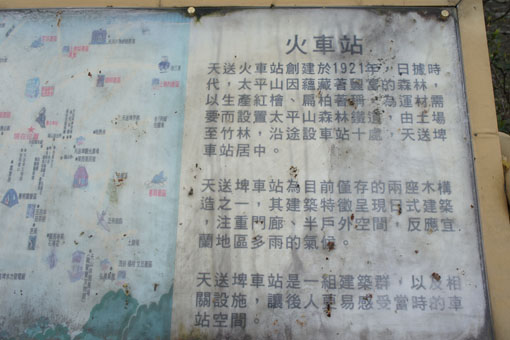 火車站
天送埤火車站創建於1921年，日據時
代，太平山因蘊藏著豐富的森林，
以生產紅檜、扁柏著稱，為運材需
要而設置太平山森林鐵道，由土場
至竹林，沿途設車站十處，天送埤
車站居中。
天送埤車站為目前僅存的兩座木構
造之一，其建築特徵呈現日式建築
，注重門廊、半戶外空間，反應宜
蘭地區多雨的氣候。
天送埤車站是一組建築群，以及相
關設施，讓後人更易感受當時的車
站空間。